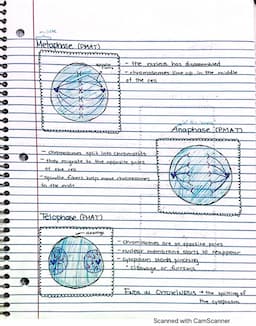 Metaphase (PMAT)
- the nucleus has disappeared
- chromosomes line up in the middle
of the cell
Anaphase (PMAT)
- chromosomes split into chromatids
- they migrate to the opposite poles
of the cell
- spindle fibers help move chromosomes
to the
Telophase (PMAT)
- chromosomes are at opposite poles
- nuclear membrane starts to reappear
- cytoplasm starts pinching
- cleavage or furrows
Ends in CYTOKINESIS → the splitting of
the cytoplasm
Scanned with CamScanner